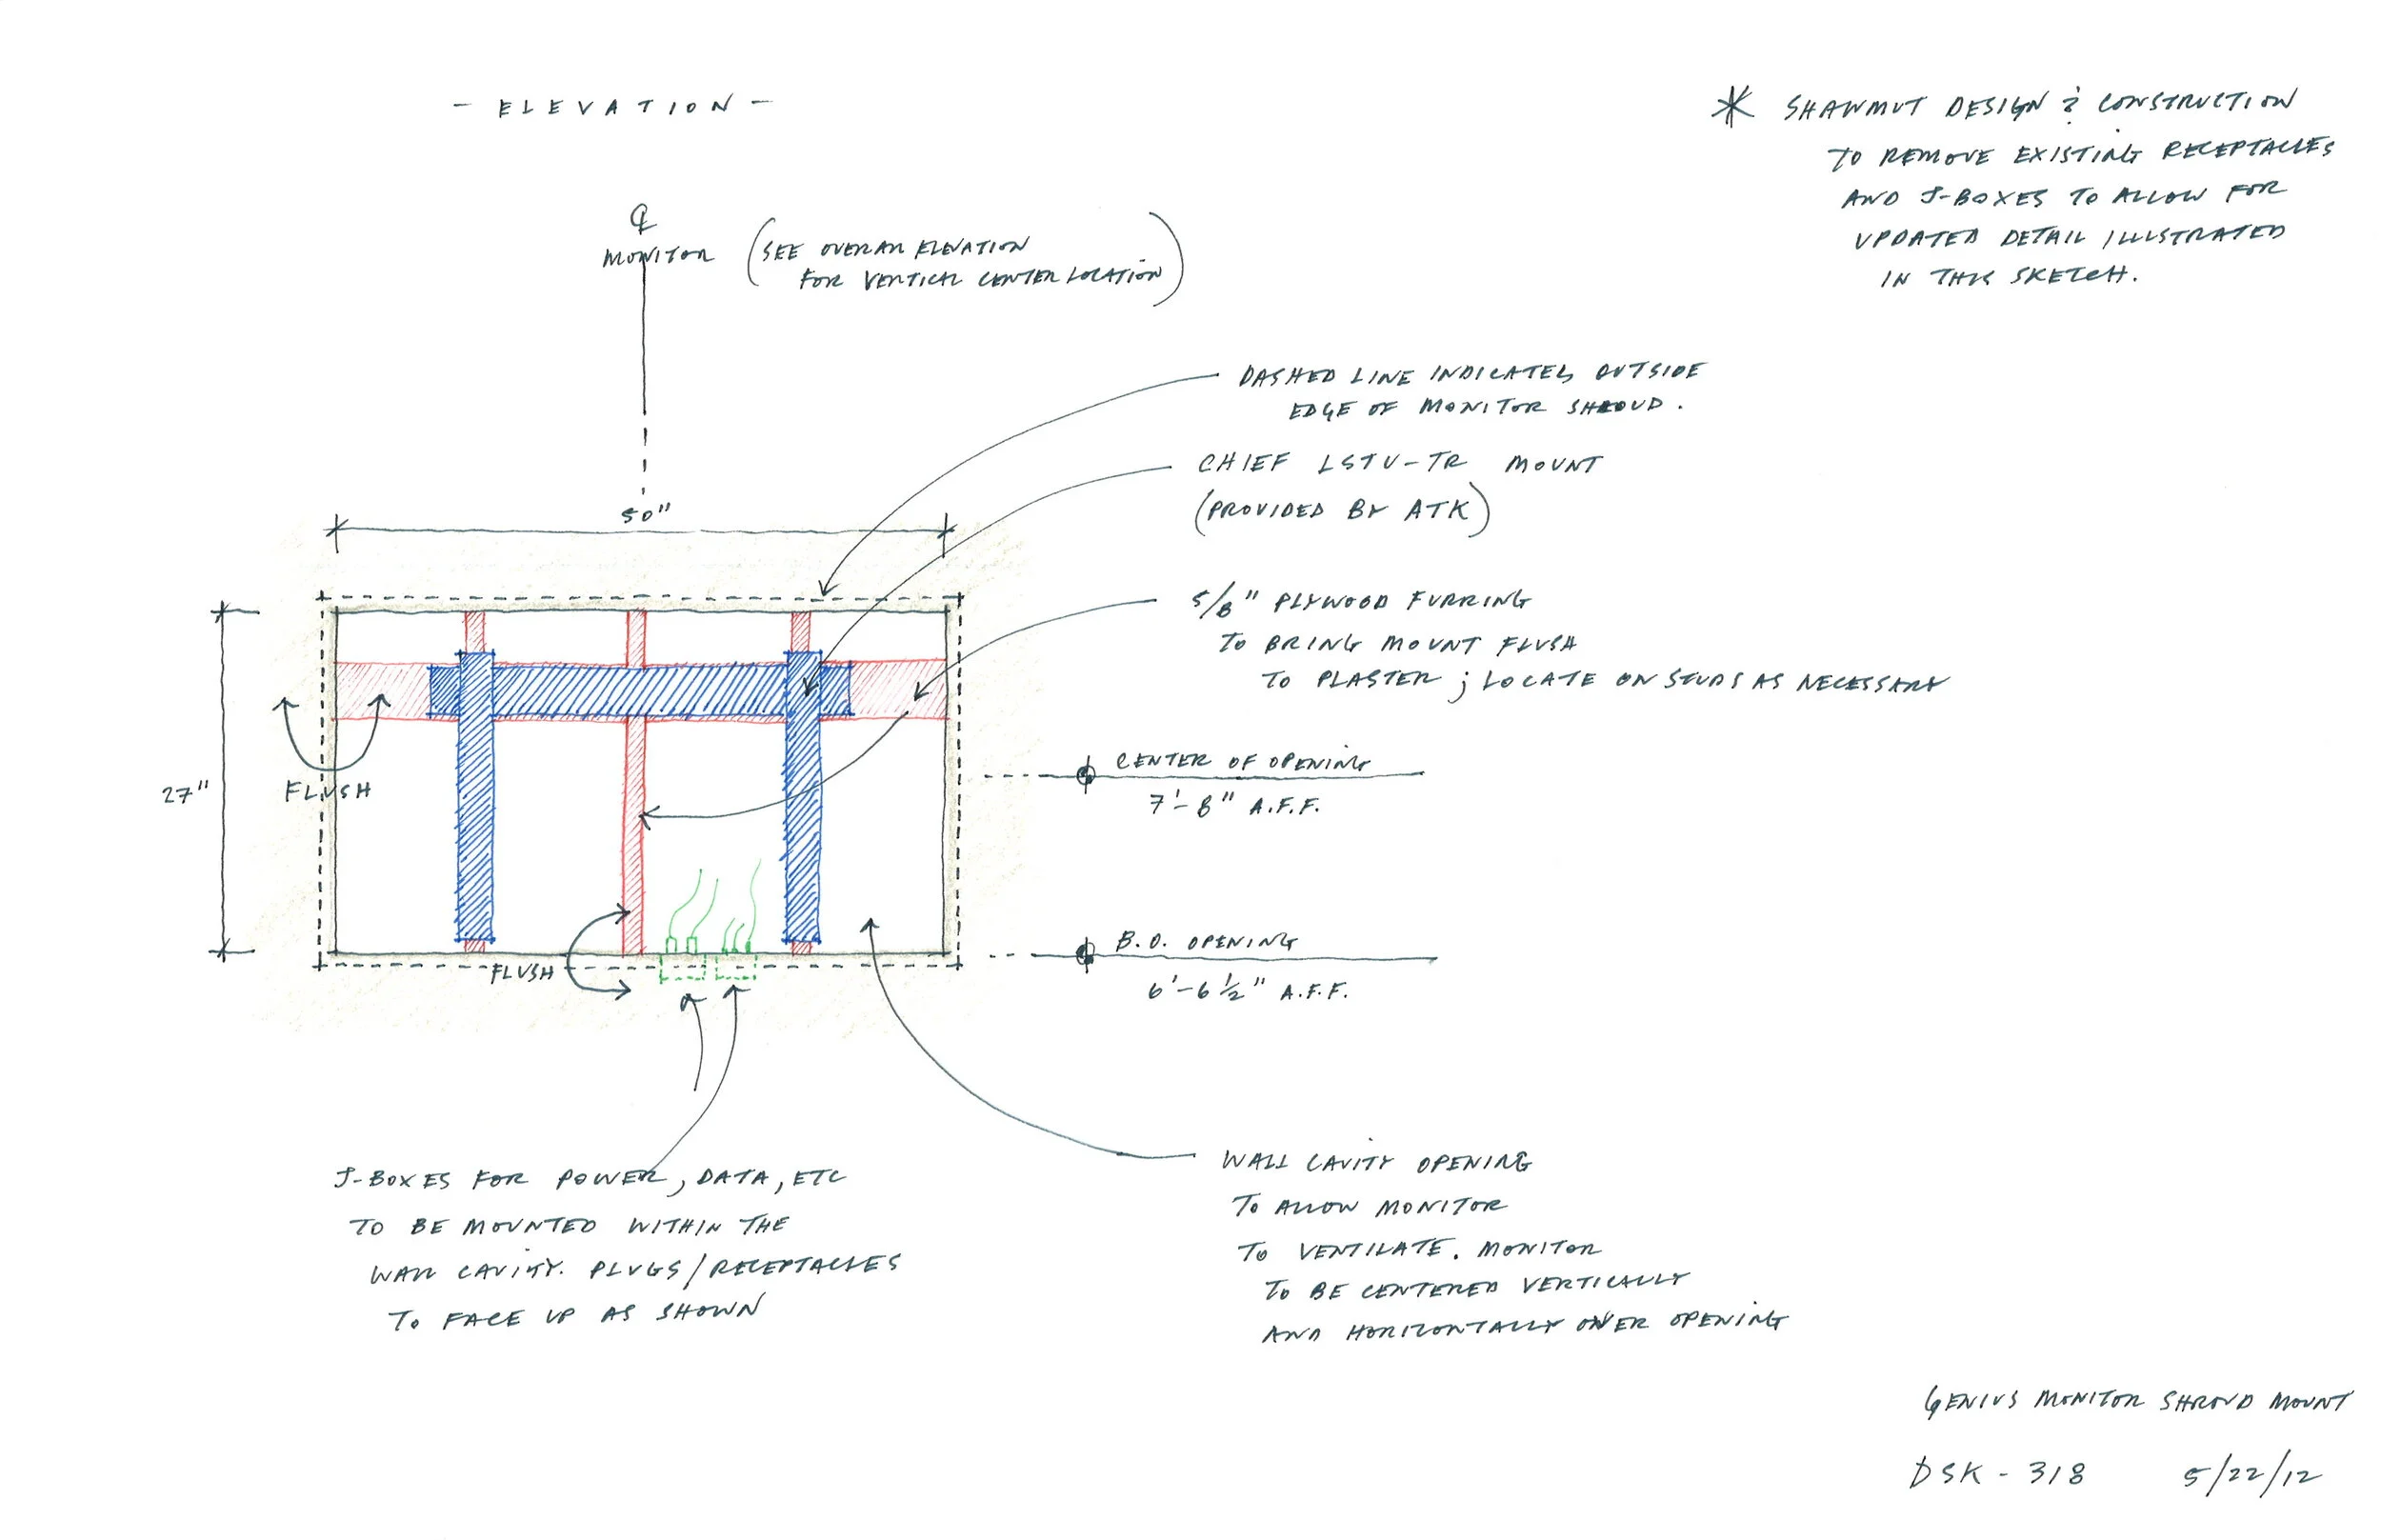 - ELEVATION -
* SHAWMUT DESIGN & CONSTRUCTION
TO REMOVE EXISTING RECEPTACLES
AND J-BOXES TO ALLOW FOR
UPDATED DETAIL ILLUSTRATED
IN THIS SKETCH.
℄
MONITOR
(SEE OVERALL ELEVATION
FOR VERTICAL CENTER LOCATION)
DASHED LINE INDICATES OUTSIDE
EDGE OF MONITOR SHROUD.
CHIEF LSTU-TR MOUNT
(PROVIDED BY ATK)
50"
5/8" PLYWOOD FURRING
TO BRING MOUNT FLUSH
TO PLASTER ; LOCATE ON STUDS AS NECESSARY
27"
FLUSH
CENTER OF OPENING
7'-8" A.F.F.
FLUSH
B.O. OPENING
6'-6 1/2" A.F.F.
J-BOXES FOR POWER, DATA, ETC
TO BE MOUNTED WITHIN THE
WALL CAVITY. PLUGS/RECEPTACLES
TO FACE UP AS SHOWN
WALL CAVITY OPENING
TO ALLOW MONITOR
TO VENTILATE. MONITOR
TO BE CENTERED VERTICALLY
AND HORIZONTALLY OVER OPENING
GENIUS MONITOR SHROUD MOUNT
DSK - 318 5/22/12